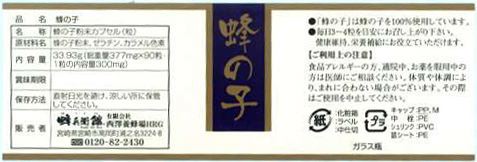 品名 蜂の子
名称 蜂の子粉末カプセル(粒)
原材料名 蜂の子粉末、ゼラチン、カラメル色素
内容量 33.93g(総重量377mg×90粒・
1粒の内容量300mg)
賞味期限
保存方法 直射日光を避け、涼しい所に保管
してください。
販売者 有限会社
西澤養蜂場HRG
宮崎県宮崎市高岡町浦之名3224-8
0120-82-2430
蜂の子
●「蜂の子」は蜂の子を100%使用しています。
●毎日3〜4粒を目安にお召し上がり下さい。
健康維持、栄養補給にお役立ていただけます。
【ご利用上の注意】
食品アレルギーの方、通院中、お薬を服用中の
方は医師にご相談ください。体質や体調によ
り、まれに合わない場合がございます。その際
はご使用を中止してください。
紙
:化粧箱
:ラベル
:中仕切
プラ
キャップ:PP、M
中栓:PE
シュリンク:PVC
詰シート:PE
ガラス瓶